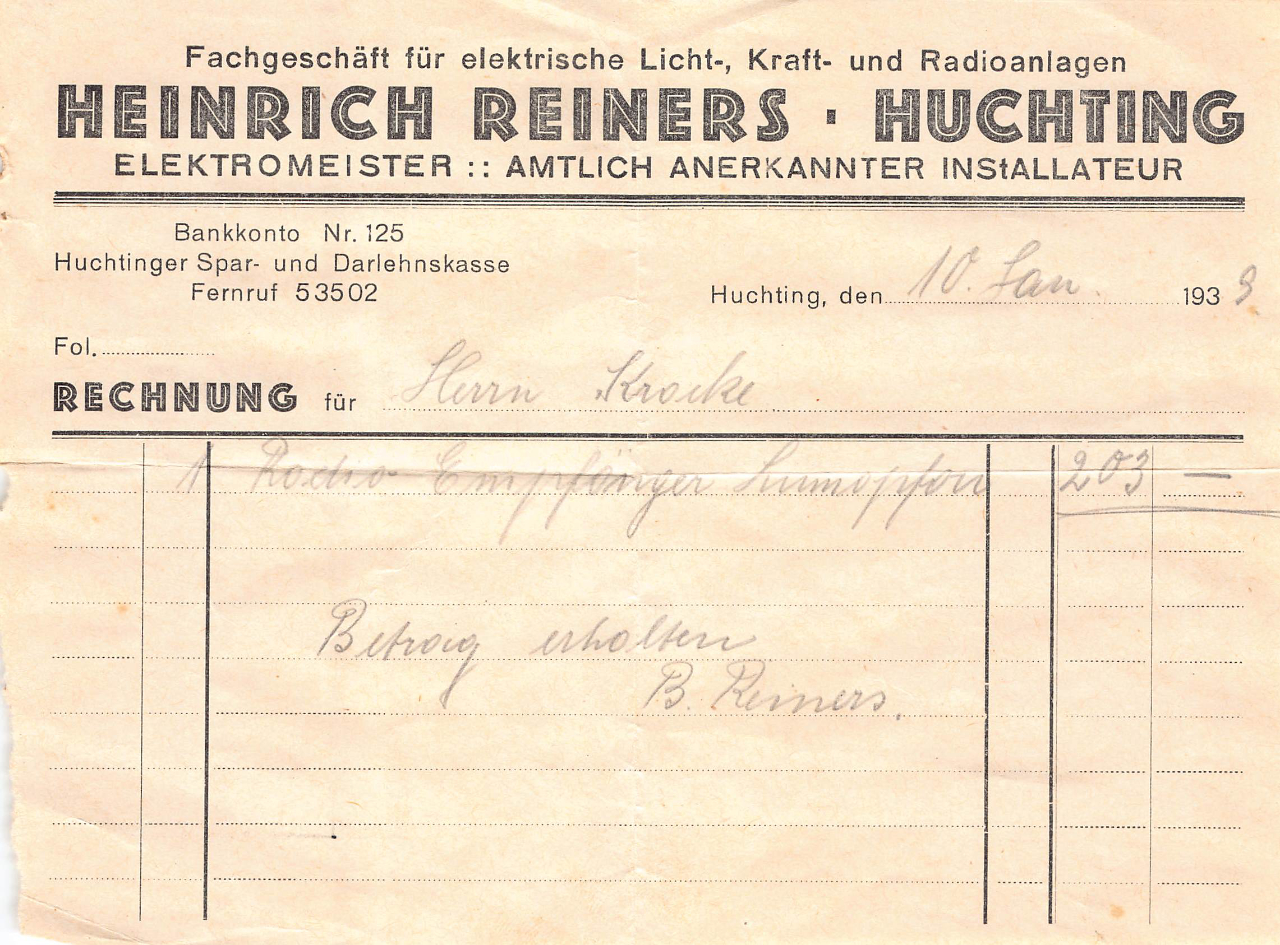 Fachgeschäft für elektrische Licht-, Kraft- und Radioanlagen
HEINRICH REINERS · HUCHTING
ELEKTROMEISTER :: AMTLICH ANERKANNTER INStALLATEUR
Bankkonto Nr. 125
Huchtinger Spar- und Darlehnskasse
Fernruf 53502
Huchting, den 10. Jan. 1939
Fol.
RECHNUNG für Herrn Kracke
1 Radio Empfänger Lumophon 203 —
Betrag erhalten
B. Reiners.